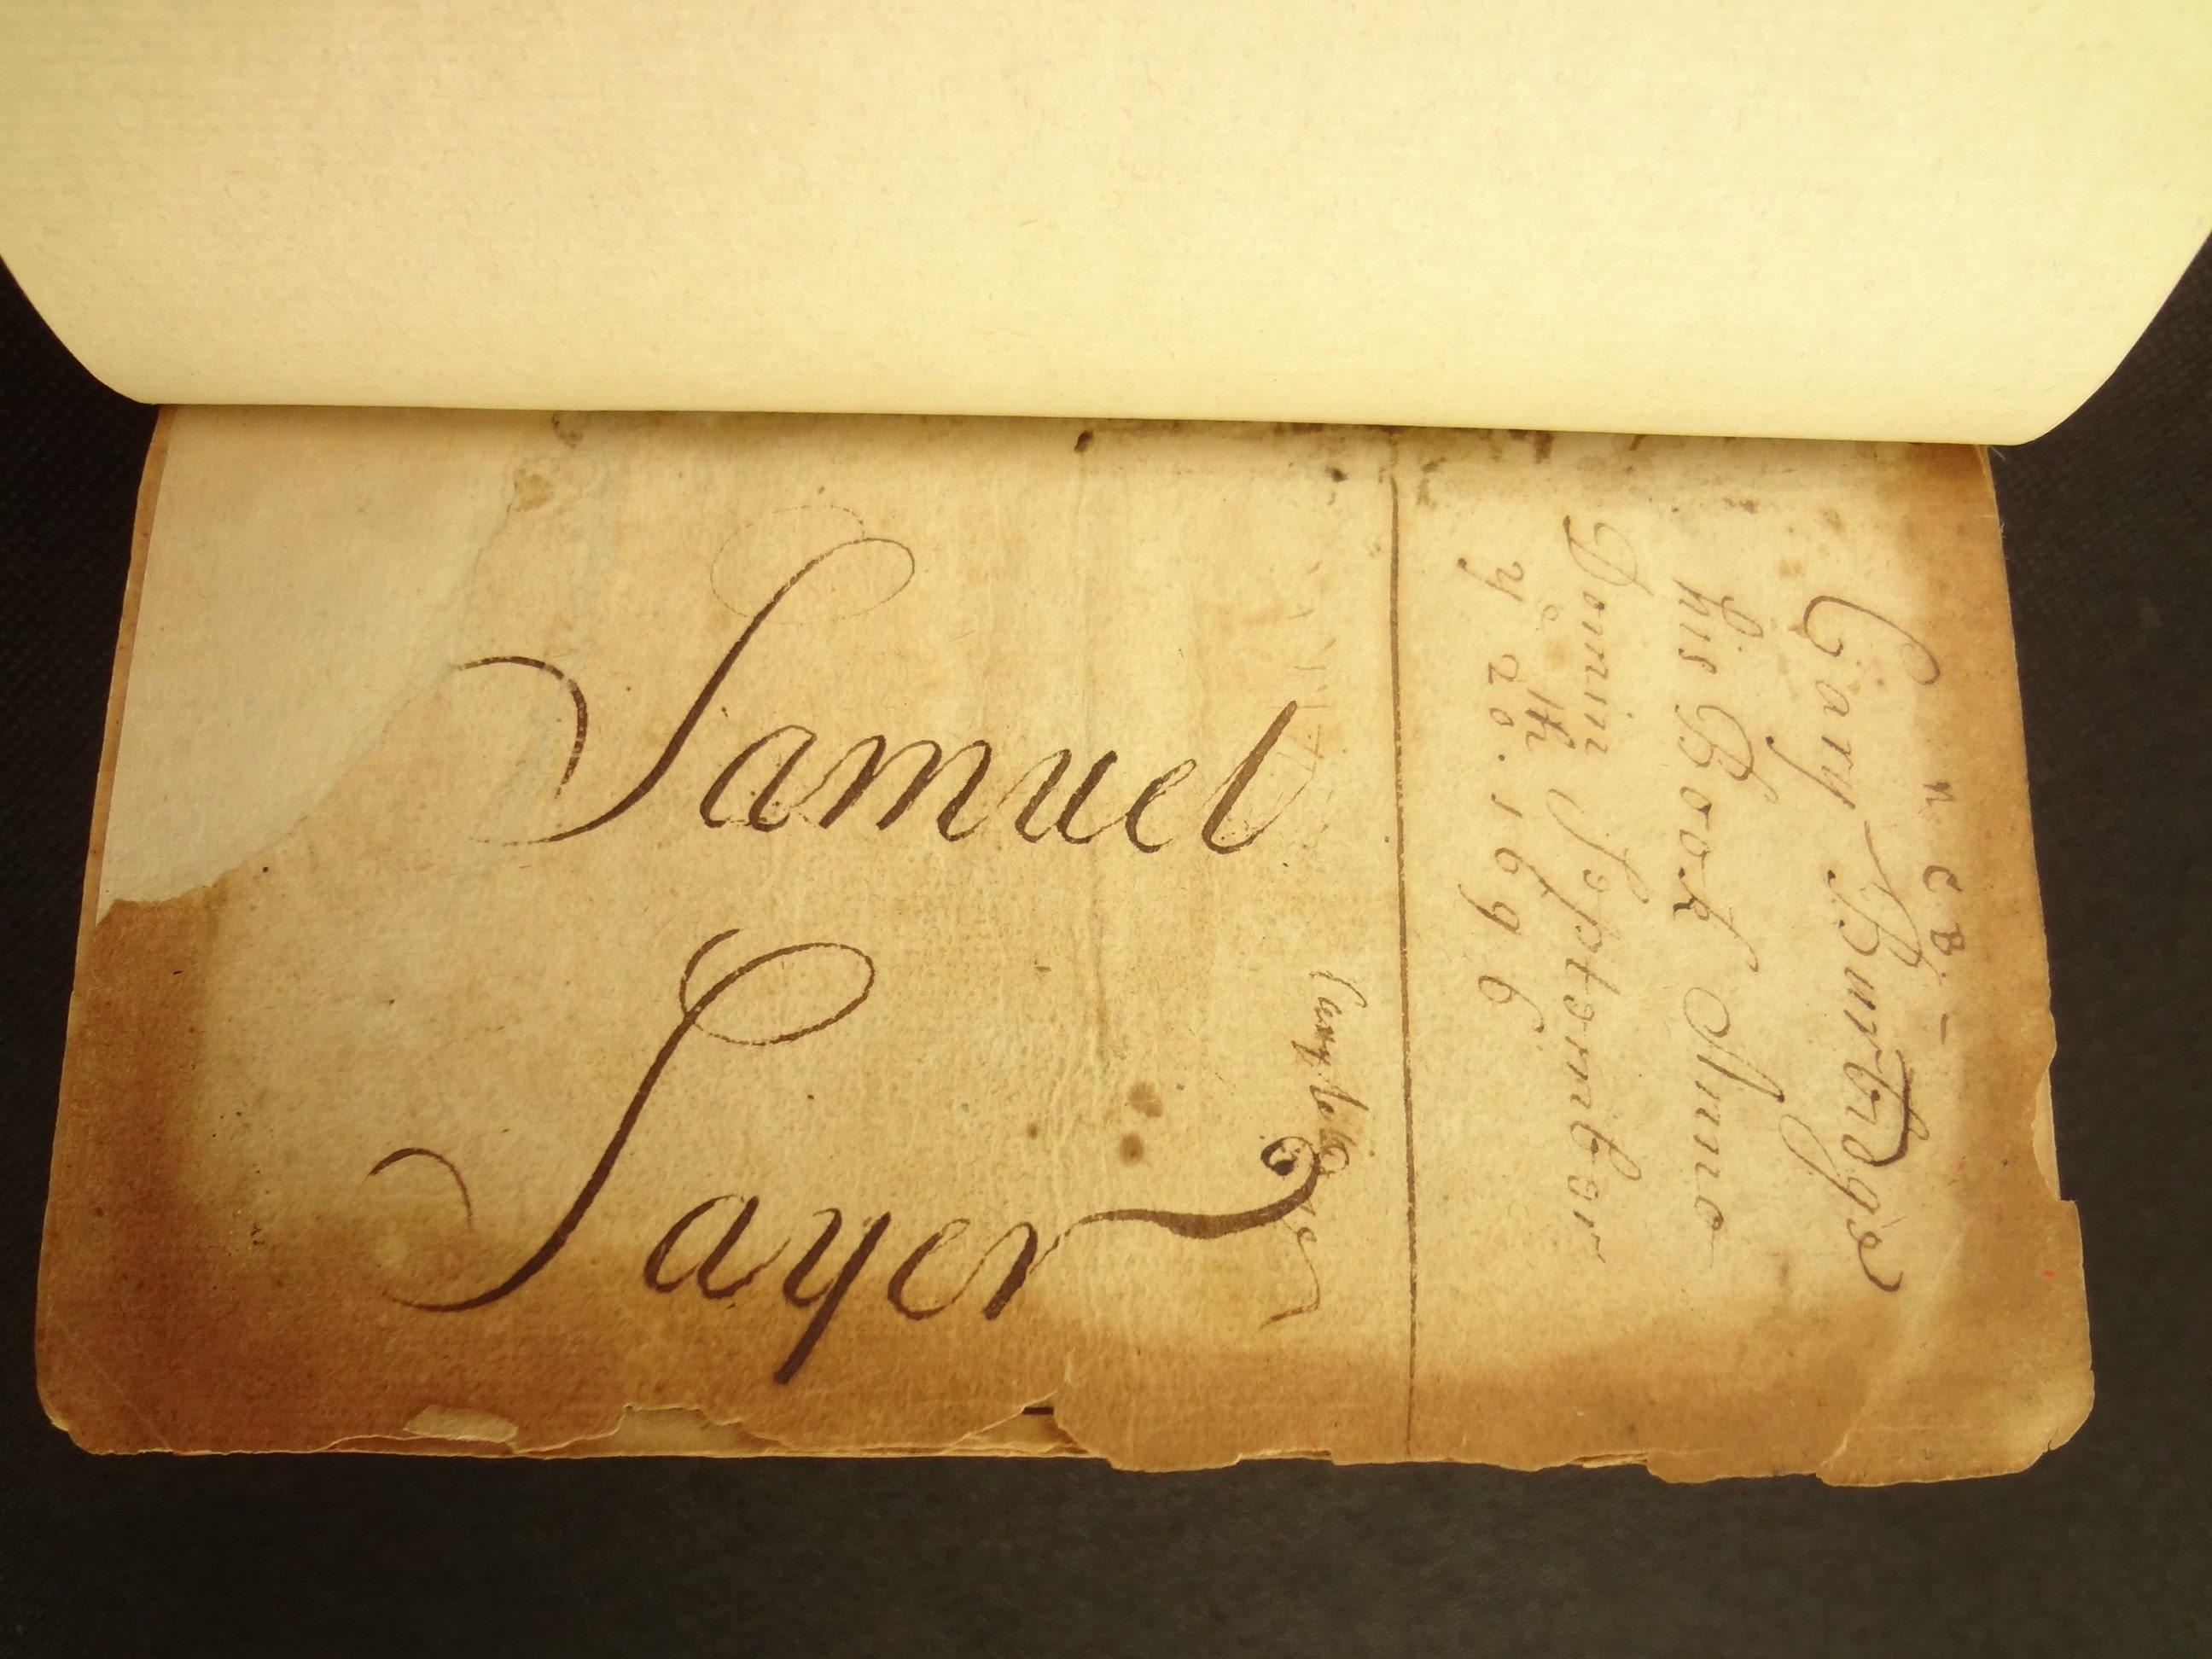 Samuel
Sayer
Cary Burbidge
his Book Anno
Domini September
yᵉ 20th. 1696